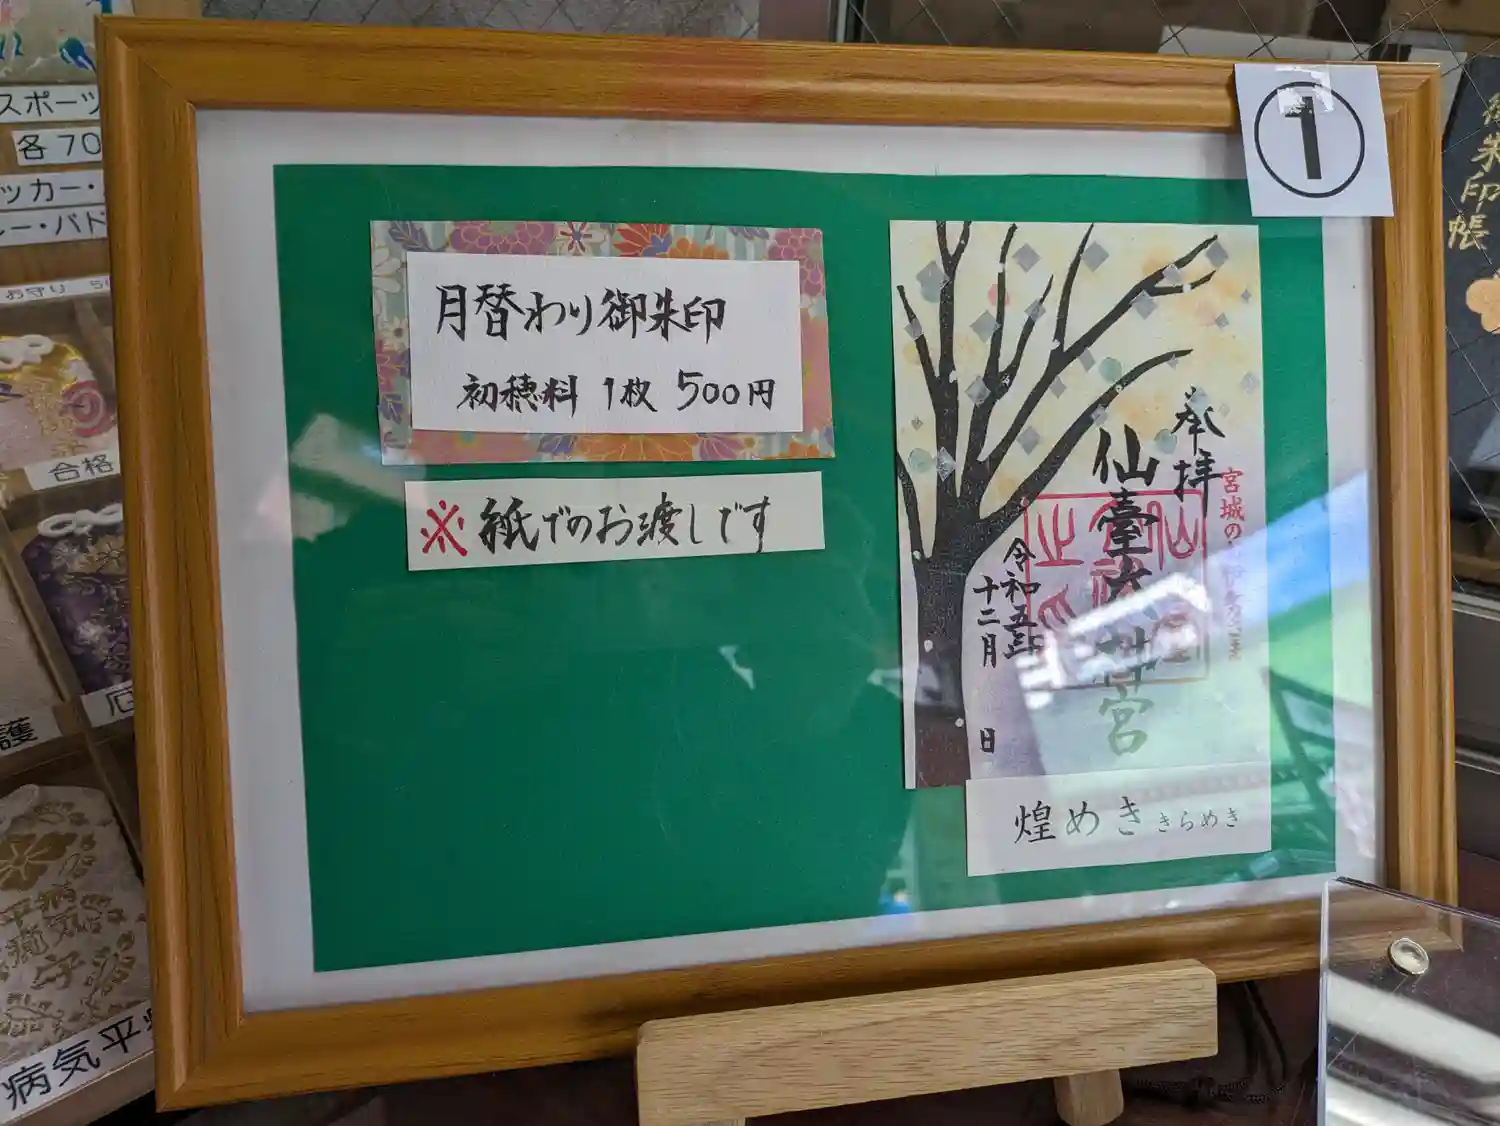 月替わり御朱印
初穂料 1枚 500円
※紙でのお渡しです
①
奉拝
宮城の
仙臺大神宮
令和五年
十二月 日
煌めき きらめき
御朱印帳
スポーツ
各70
ッカー・
ー・バド
お守り
合格
護
病気平
病気平